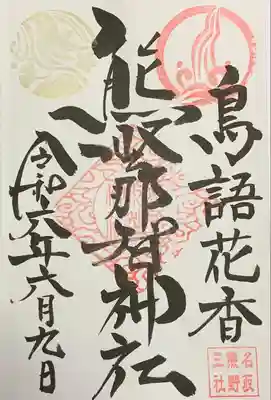 鳥語花香
熊野那智神社
令和六年六月九日
名取
熊野
三社